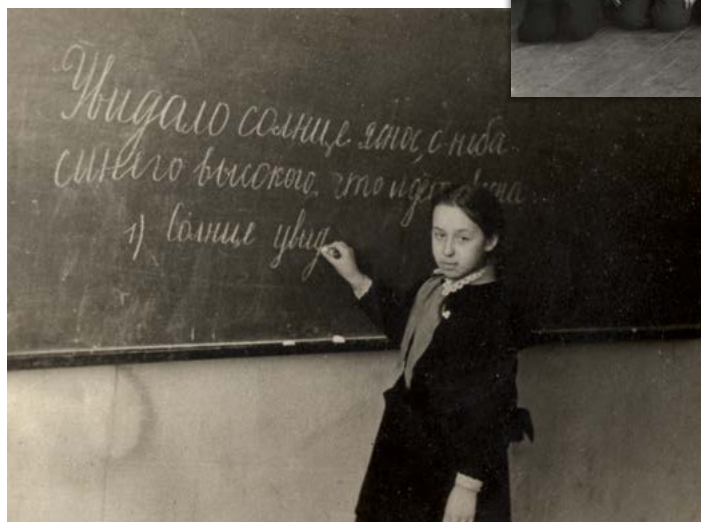 Увидало солнце ясное, с неба
синего высокого, что идёт
1) Солнце увид